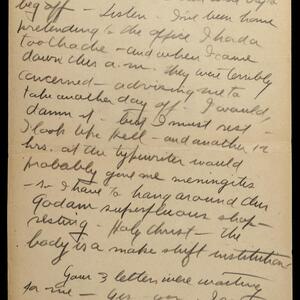 beg off – Listen. I've been home
pretending to the office I had a
toothache – and when I came
down this a.m. they were terribly
concerned – advising me to
take another day off. I would,
damn it – but I must rest –
I look like hell – and another 12
hrs. at the typewriter would
probably give me meningites
– so I have to hang around this
Godam superfluous shop –
resting. Holy Christ – the
body is a make shift institution
Your 3 letters were waiting
for me –